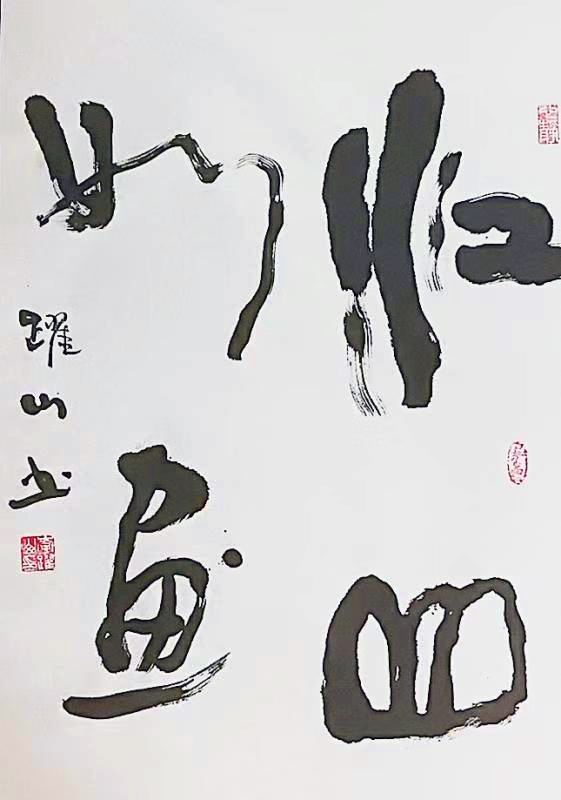 江山
如画
躍山书